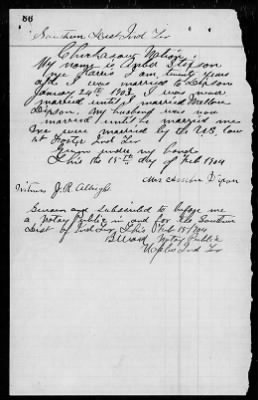 66
Southern Dist Ind Ter
Chickasaw Nation
My name is Dixson
nee Harris I am twenty years
old I was married to Dixson
January 24th 1903 I was never
married until I married
Dixson. My husband was never
married until he married me
We were married by the U.S. law
at Foster Ind Ter
Given under my hand
this the 15th day of Feb 1904
Mrs Dixson
Witness J.R. Albright
Sworn and subscribed to before me
a Notary Public in and for the Southern
Dist of Ind Ter, this Feb 15/904
Notary Public
Ind Ter